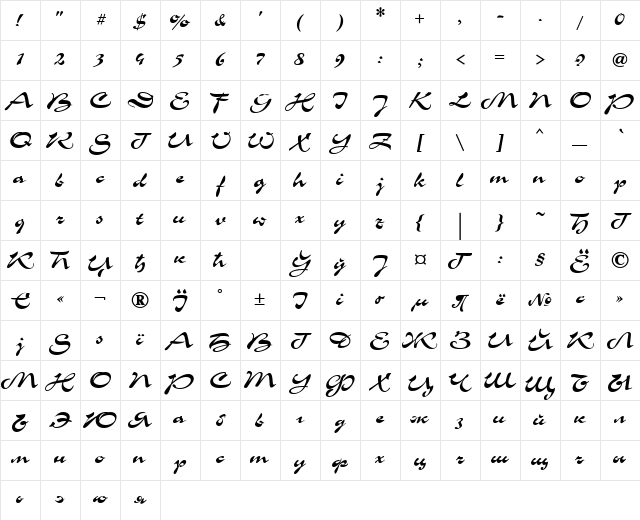 ! " # $ % & ' ( ) * + , - . / 0
1 2 3 4 5 6 7 8 9 : ; < = > ? @
A B C D E F G H I J K L M N O P
Q R S T U V W X Y Z [ \ ] ^ _ `
a b c d e f g h i j k l m n o p
q r s t u v w x y z { | } ~ Ђ Ѓ
Ќ Ћ Џ ђ ќ ћ Ў ў Ј ¤ Ґ : § Ё ©
Є « ¬ ® Ї ° ± І і ґ µ ¶ ё № є »
ј Ѕ ѕ ї А Б В Г Д Е Ж З И Й К Л
М Н О П Р С Т У Ф Х Ц Ч Ш Щ Ъ Ы
Ь Э Ю Я а б в г д е ж з и й к л
м н о п р с т у ф х ц ч ш щ ъ ы
ь э ю я